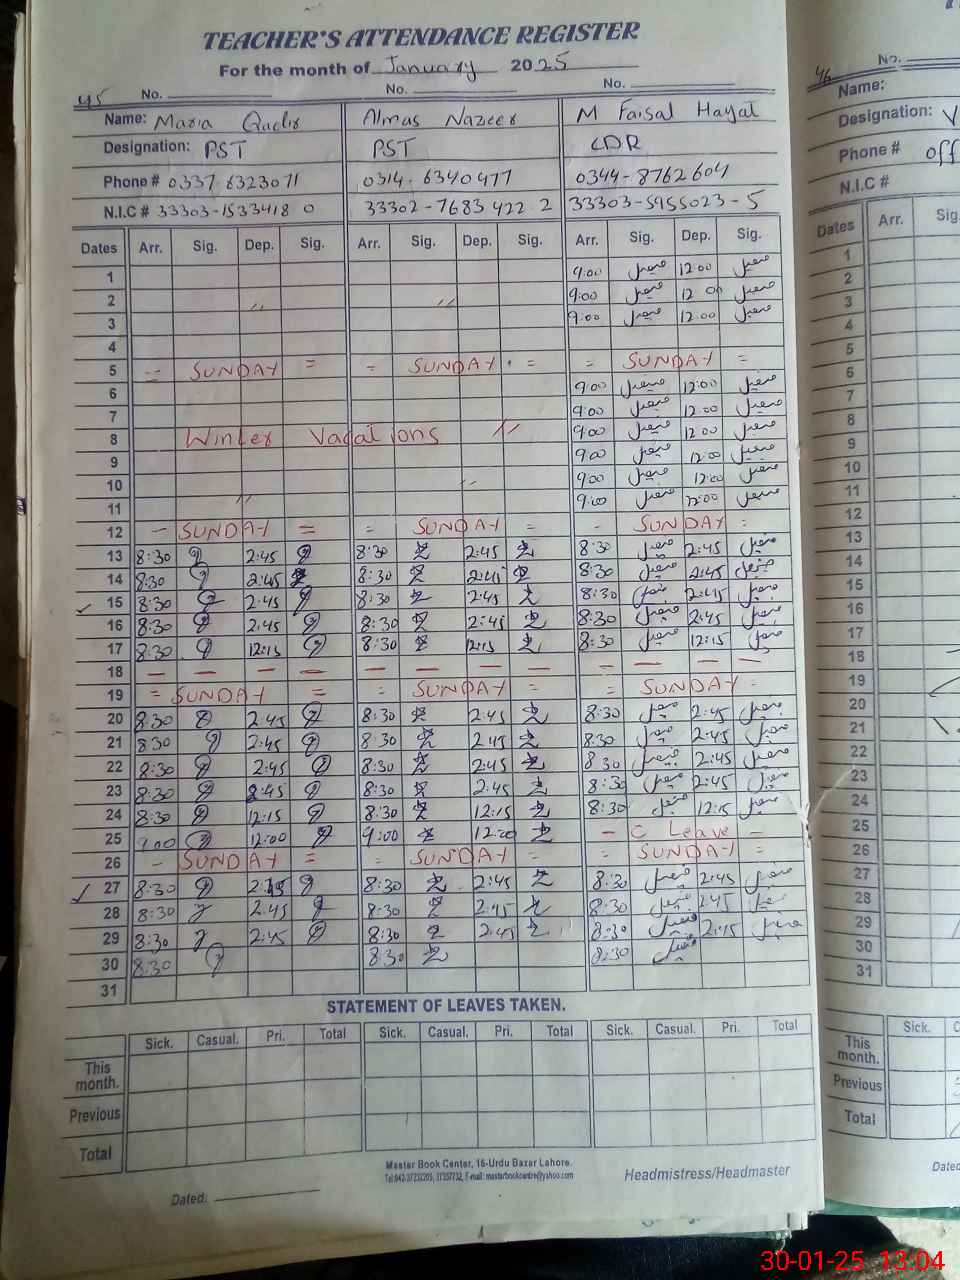 TEACHER'S ATTENDANCE REGISTER
For the month of January 2025
45 No. No. No.
Name: Maria Qadir Almas Nazeer M Faisal Hayat
Designation: PST PST CDR
Phone # 0337-6323071 0314-6340477 0344-8762604
N.I.C # 33303-1533418 0 33302-7683422-2 33303-5955023-5
Dates Arr. Sig. Dep. Sig. Arr. Sig. Dep. Sig. Arr. Sig. Dep. Sig.
1 9:00 فیصل 12:00 فیصل
2 〃 〃 9:00 فیصل 12 00 فیصل
3 9:00 فیصل 12:00 فیصل
4
5 = SUNDAY = = SUNDAY = = SUNDAY =
6 9:00 فیصل 12:00 فیصل
7 9:00 فیصل 12:00 فیصل
8 Winter Vacations 〃 9:00 فیصل 12:00 فیصل
9 9:00 فیصل 12:00 فیصل
10 〃 9:00 فیصل 12:00 فیصل
11 〃 9:00 فیصل 12:00 فیصل
12 - SUNDAY = = SUNDAY = - SUNDAY =
13 8:30 2:45 8:30 2:45 8:30 فیصل 2:45 فیصل
14 8:30 2:45 8:30 2:45 8:30 فیصل 2:45 فیصل
✓ 15 8:30 2:45 8:30 2:45 8:30 فیصل 2:45 فیصل
16 8:30 2:45 8:30 2:45 8:30 فیصل 2:45 فیصل
17 8:30 12:15 8:30 12:15 8:30 فیصل 12:15 فیصل
18 — — — — — — — — — — — —
19 = SUNDAY = = SUNDAY = = SUNDAY =
20 8:30 2:45 8:30 2:45 8:30 فیصل 2:45 فیصل
21 8:30 2:45 8:30 2:45 8:30 فیصل 2:45 فیصل
22 8:30 2:45 8:30 2:45 8:30 فیصل 2:45 فیصل
23 8:30 2:45 8:30 2:45 8:30 فیصل 2:45 فیصل
24 8:30 12:15 8:30 12:15 8:30 فیصل 12:15 فیصل
25 9:00 12:00 9:00 12:00 - C Leave -
26 - SUNDAY = = SUNDAY = = SUNDAY =
✓ 27 8:30 2:45 8:30 2:45 8:30 فیصل 2:45 فیصل
28 8:30 2:45 8:30 2:45 8:30 فیصل 2:45 فیصل
29 8:30 2:45 8:30 2:45 8:30 فیصل 2:45 فیصل
30 8:30 8:30 8:30 فیصل
31
STATEMENT OF LEAVES TAKEN.
Sick. Casual. Pri. Total Sick. Casual. Pri. Total Sick. Casual. Pri. Total
This month.
Previous
Total
Master Book Center, 16-Urdu Bazar Lahore.
Headmistress/Headmaster
Dated:
46 No.
Name:
Designation:
Phone # off
N.I.C #
Dates Arr. Sig.
1
2
3
4
5
6
7
8
9
10
11
12
13
14
15
16
17
18
19
20
21
22
23
24
25
26
27
28
29
30
31
Sick.
This month.
Previous
Total
30-01-25 13:04